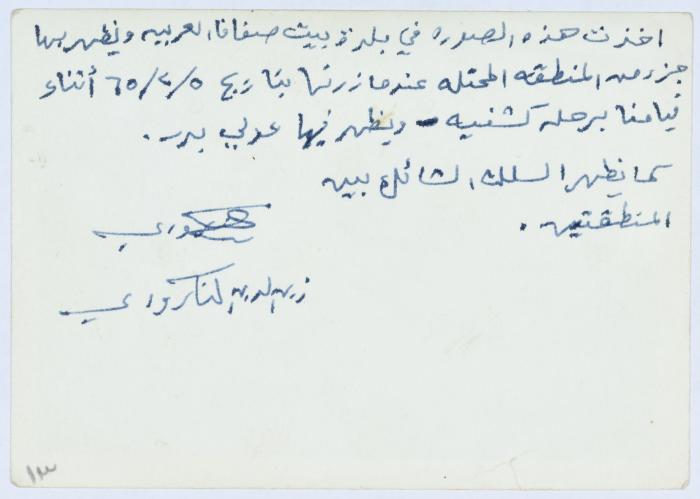 اخذت هذه الصوره في بلدة بيت صفافا العربيه ويظهر بها
جزء من المنطقه المحتله عندما زرتها بتاريخ ٦٥/٢/٥ أثناء
قيامنا برحله كشفيه - ويظهر فيها عوني بدر .
كما يظهر السلك الشائك بين
المنطقتين .
زين الدين
١٣